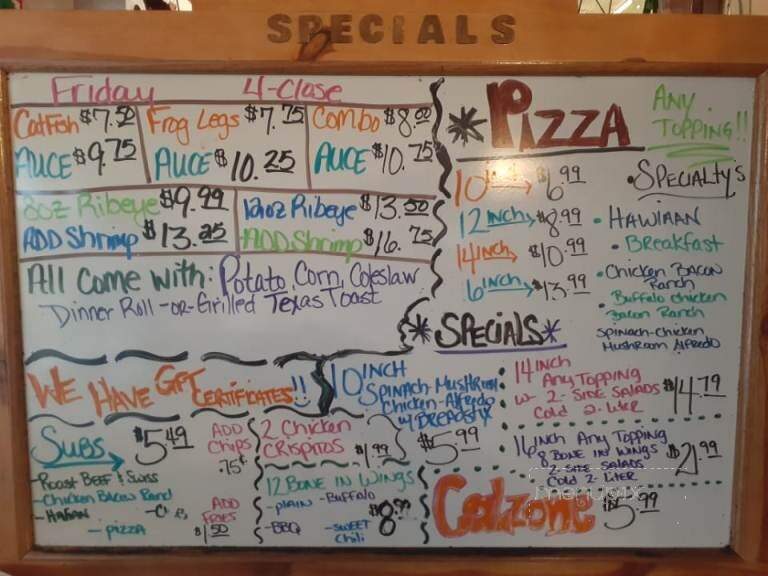 SPECIALS
Friday 4-Close
Catfish $7.50
AUCE $9.75
Frog Legs $7.75
AUCE $10.25
Combo $8.00
AUCE $10.75
8oz Ribeye $9.99
ADD Shrimp $13.25
12oz Ribeye $13.50
ADD Shrimp $16.75
All Come with: Potato, Corn, Coleslaw
Dinner Roll -or- Grilled Texas Toast
WE HAVE GIFT CERTIFICATES!!
SUBS $5.49
ADD Chips .75¢
-Roast Beef & Swiss
-Chicken Bacon Ranch
-Italian
-Pizza
ADD FRIES $1.50
2 Chicken CRISPITOS $1.99
12 BONE IN WINGS
-PLAIN -Buffalo
-BBQ -SWEET Chili
$8.99
* PIZZA
ANY TOPPING!!
10 inch → $6.99
12 inch → $8.99
14 inch → $10.99
6 inch → $13.99
• SPECIALTY'S
• HAWIIAN
• Breakfast
• Chicken BACON Ranch
• Buffalo Chicken Bacon Ranch
SPINACH-Chicken MUSHROOM Alfredo
* SPECIALS *
10 INCH
SPINACH MUSHROOM
Chicken-Alfredo
w/ BREADSTIX
$5.99
14 INCH
Any Topping
w- 2-SIDE SALADS
Cold 2-LITER
$14.79
16 inch Any Topping
8 BONE IN WINGS
2-SIDE SALADS
Cold 2-LITER
$21.99
Calzone $5.99